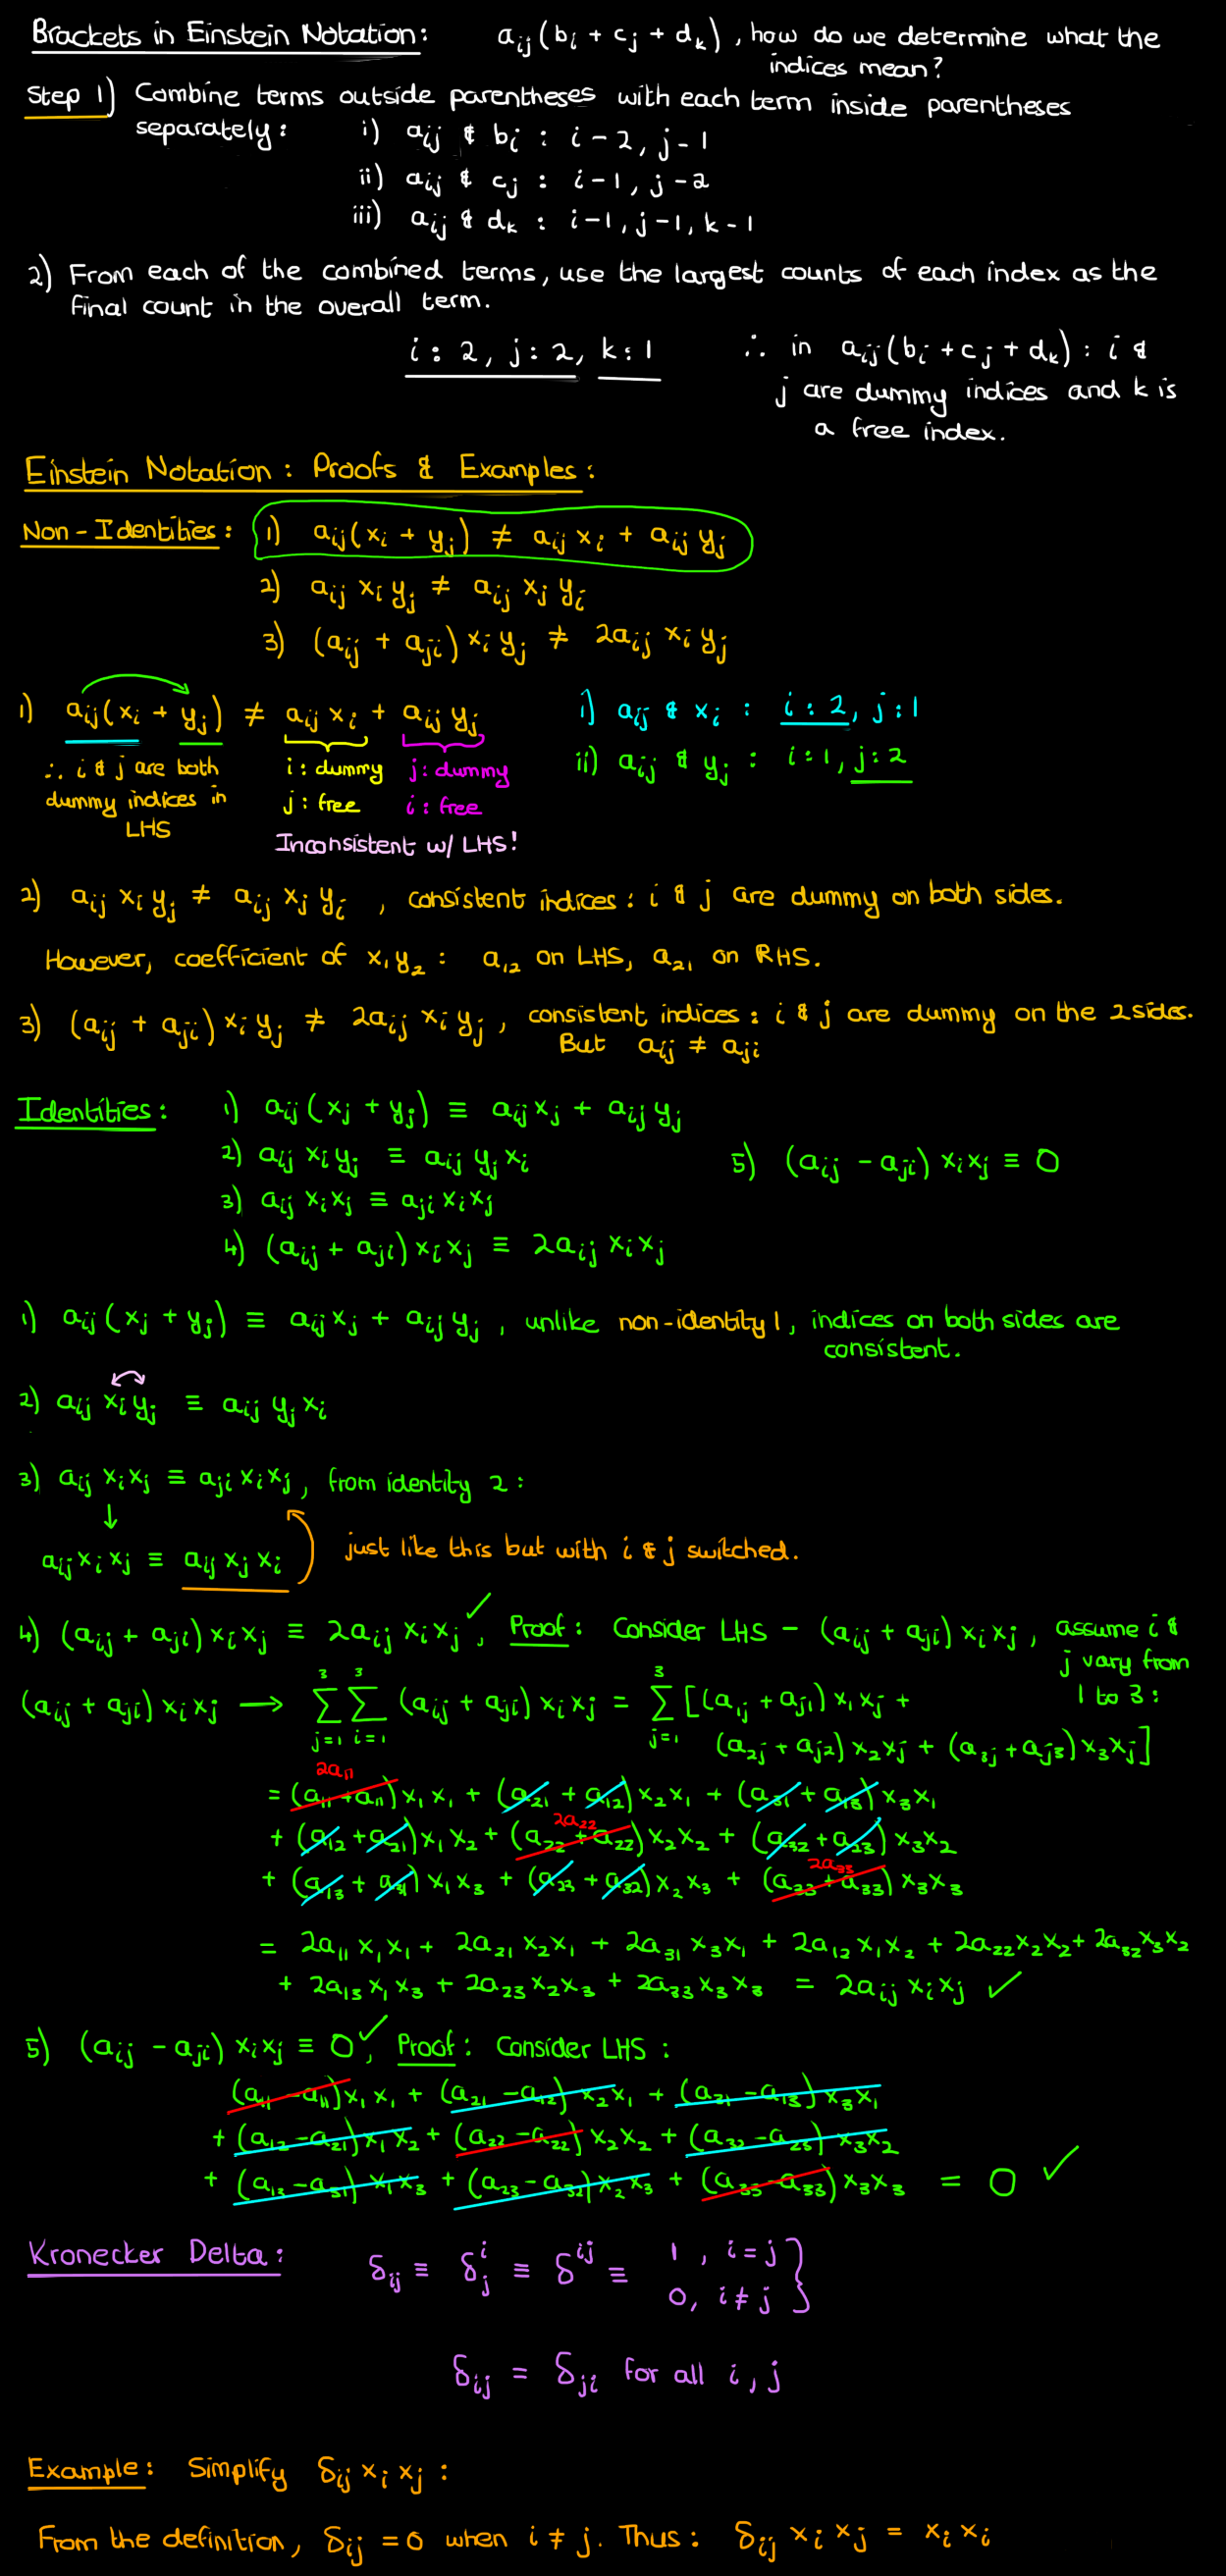 Brackets in Einstein Notation: a_ij (b_i + c_j + d_k), how do we determine what the
indices mean?
Step 1) Combine terms outside parentheses with each term inside parentheses
separately: i) a_ij & b_i : i - 2, j - 1
ii) a_ij & c_j : i - 1, j - 2
iii) a_ij & d_k : i - 1, j - 1, k - 1
2) From each of the combined terms, use the largest counts of each index as the
final count in the overall term.
i : 2, j : 2, k : 1 ∴ in a_ij (b_i + c_j + d_k) : i &
j are dummy indices and k is
a free index.
Einstein Notation: Proofs & Examples:
Non-Identities: 1) a_ij (x_i + y_j) ≠ a_ij x_i + a_ij y_j
2) a_ij x_i y_j ≠ a_ij x_j y_i
3) (a_ij + a_ji) x_i y_j ≠ 2a_ij x_i y_j
1) a_ij (x_i + y_j) ≠ a_ij x_i + a_ij y_j i) a_ij & x_i : i : 2, j : 1
ii) a_ij & y_j : i : 1, j : 2
∴ i & j are both i : dummy j : dummy
dummy indices in j : free i : free
LHS
Inconsistent w/ LHS!
2) a_ij x_i y_j ≠ a_ij x_j y_i , consistent indices : i & j are dummy on both sides.
However, coefficient of x_1 y_2 : a_12 on LHS, a_21 on RHS.
3) (a_ij + a_ji) x_i y_j ≠ 2a_ij x_i y_j , consistent indices : i & j are dummy on the 2 sides.
But a_ij ≠ a_ji
Identities: 1) a_ij (x_j + y_j) ≡ a_ij x_j + a_ij y_j
2) a_ij x_i y_j ≡ a_ij y_j x_i 5) (a_ij - a_ji) x_i x_j ≡ 0
3) a_ij x_i x_j ≡ a_ji x_i x_j
4) (a_ij + a_ji) x_i x_j ≡ 2a_ij x_i x_j
1) a_ij (x_j + y_j) ≡ a_ij x_j + a_ij y_j , unlike non-identity 1, indices on both sides are
consistent.
2) a_ij x_i y_j ≡ a_ij y_j x_i
3) a_ij x_i x_j ≡ a_ji x_i x_j , from identity 2 :
↓
a_ij x_i x_j ≡ a_ij x_j x_i just like this but with i & j switched.
4) (a_ij + a_ji) x_i x_j ≡ 2a_ij x_i x_j ✓, Proof: Consider LHS - (a_ij + a_ji) x_i x_j , assume i &
j vary from
1 to 3 :
(a_ij + a_ji) x_i x_j → ∑_{j=1}^3 ∑_{i=1}^3 (a_ij + a_ji) x_i x_j = ∑_{j=1}^3 [(a_1j + a_j1) x_1 x_j +
(a_2j + a_j2) x_2 x_j + (a_3j + a_j3) x_3 x_j]
2a_11
= (a_11 + a_11) x_1 x_1 + (a_21 + a_12) x_2 x_1 + (a_31 + a_13) x_3 x_1
2a_22
+ (a_12 + a_21) x_1 x_2 + (a_22 + a_22) x_2 x_2 + (a_32 + a_23) x_3 x_2
2a_33
+ (a_13 + a_31) x_1 x_3 + (a_23 + a_32) x_2 x_3 + (a_33 + a_33) x_3 x_3
= 2a_11 x_1 x_1 + 2a_21 x_2 x_1 + 2a_31 x_3 x_1 + 2a_12 x_1 x_2 + 2a_22 x_2 x_2 + 2a_32 x_3 x_2
+ 2a_13 x_1 x_3 + 2a_23 x_2 x_3 + 2a_33 x_3 x_3 = 2a_ij x_i x_j ✓
5) (a_ij - a_ji) x_i x_j ≡ 0 ✓, Proof: Consider LHS :
(a_11 - a_11) x_1 x_1 + (a_21 - a_12) x_2 x_1 + (a_31 - a_13) x_3 x_1
+ (a_12 - a_21) x_1 x_2 + (a_22 - a_22) x_2 x_2 + (a_32 - a_23) x_3 x_2
+ (a_13 - a_31) x_1 x_3 + (a_23 - a_32) x_2 x_3 + (a_33 - a_33) x_3 x_3 = 0 ✓
Kronecker Delta: δ_ij ≡ δ^i_j ≡ δ^ij ≡ 1 , i = j }
0, i ≠ j
δ_ij = δ_ji for all i, j
Example: Simplify δ_ij x_i x_j :
From the definition, δ_ij = 0 when i ≠ j. Thus: δ_ij x_i x_j = x_i x_i